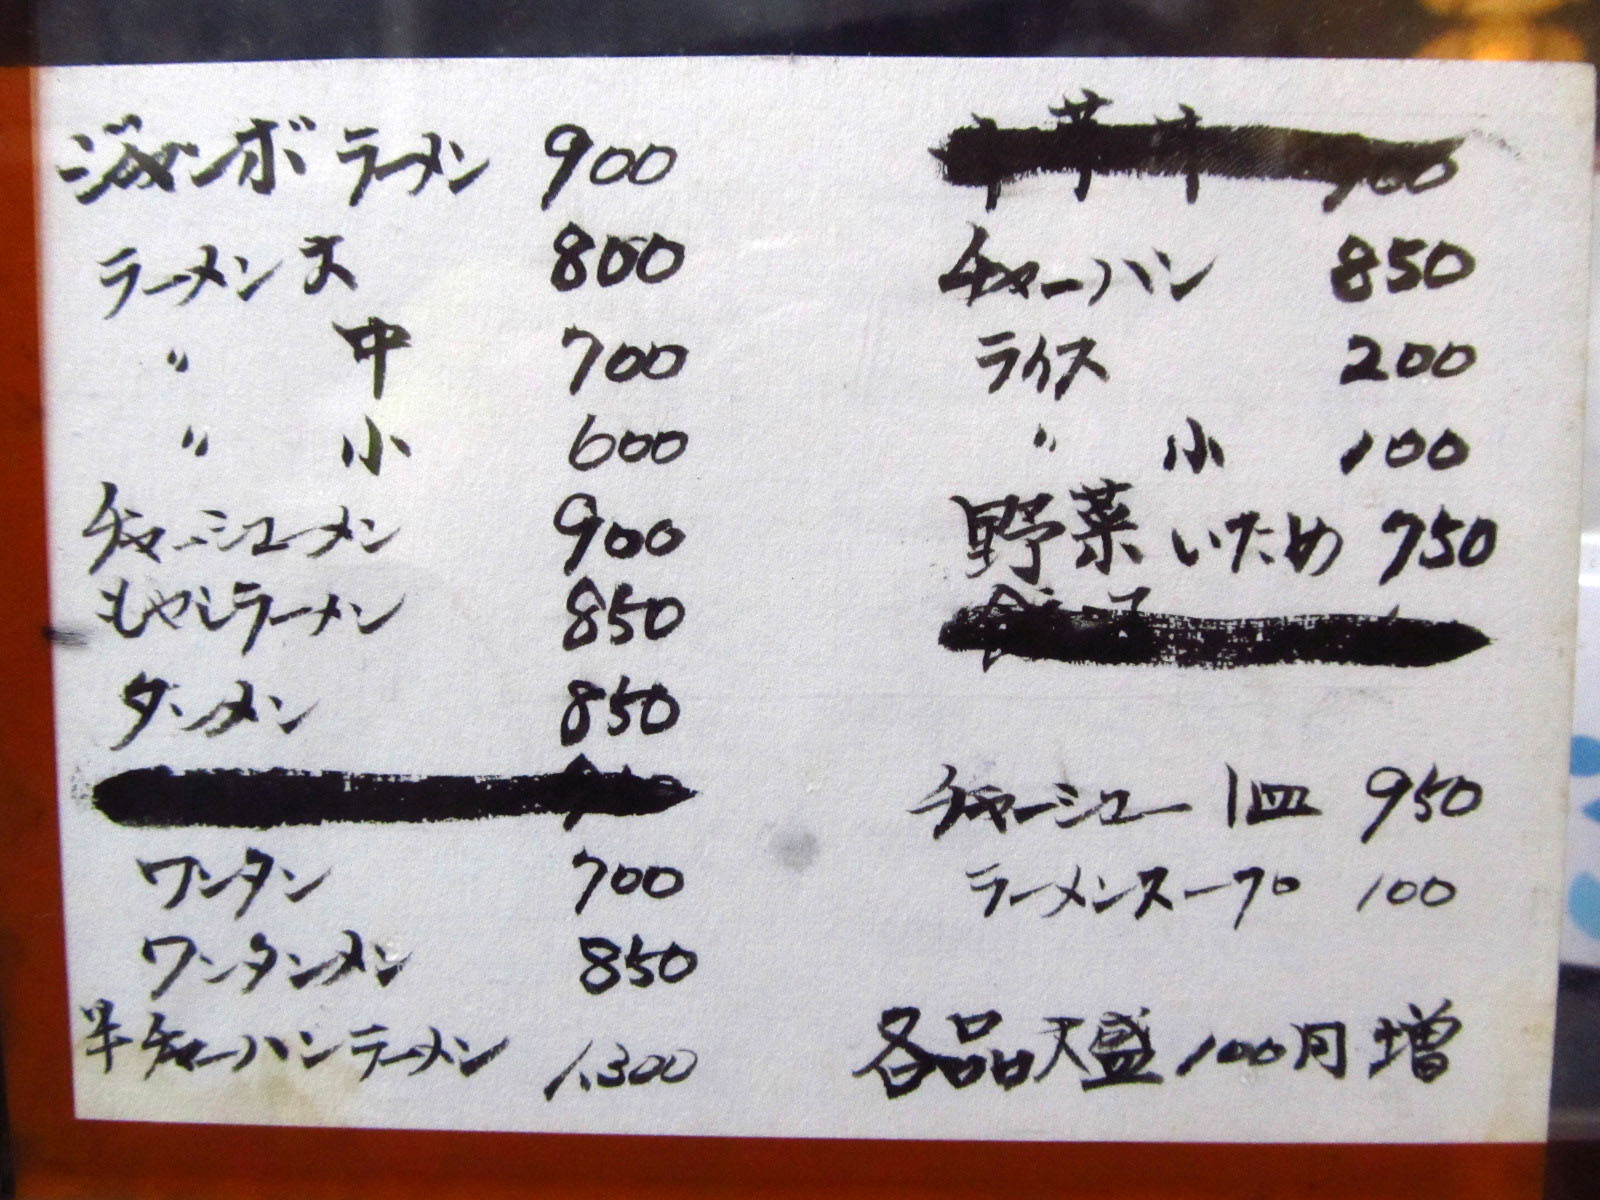 ジャンボラーメン 900
ラーメン大 800
〃 中 700
〃 小 600
チャーシューメン 900
もやしラーメン 850
タンメン 850
ワンタン 700
ワンタンメン 850
半チャーハンラーメン 1,300
チャーハン 850
ライス 200
〃 小 100
野菜いため 750
チャーシュー 1皿 950
ラーメンスープ 100
各品大盛 100円増